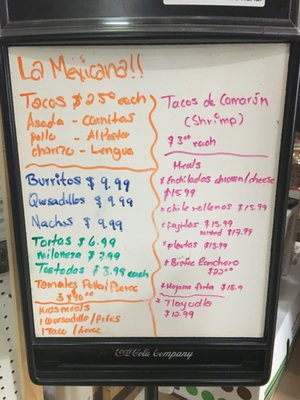 La Mexicana!!
Tacos $2.50 each
Asada - Carnitas
pollo - Al Pastor
chorizo - Lengua
Burritos $9.99
Quesadillas $9.99
Nachos $9.99
Tortas $6.99
milanesa $7.99
Tostadas $3.99 each
Tamales Pollo/Puerco
3 x $10.00
Kids meals
1 Quesadilla/Fries
1 Taco/Arroz
Tacos de Camarón
(Shrimp)
$3.00 each
Meals
* Enchiladas chicken/cheese
$15.99
* chile rellenos $15.99
* Fajitas $15.99
mixed $17.99
* $15.99
* Bistec Ranchero
* Mojarra frita
* Tlayuda
$12.99
Coca-Cola Company